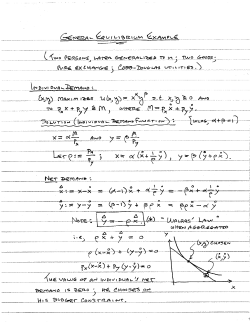 GENERAL EQUILIBRIUM EXAMPLE
(TWO PERSONS, LATER GENERALIZED TO n; TWO GOODS;
PURE EXCHANGE; COBB-DOUGLAS UTILITIES.)
INDIVIDUAL DEMAND:
(x,y) MAXIMIZES U(x,y) = x^α y^β s.t. x,y ≧ 0 AND
TO p_x x + p_y y ≦ M, WHERE M = p_x x̊ + p_y ẙ.
SOLUTION (INDIVIDUAL DEMAND FUNCTION): [WLOG, α+β=1]
x = α M/p_x AND y = β M/p_y
LET ρ := p_x/p_y; x = α(x̊ + 1/ρ ẙ), y = β(ẙ + ρx̊).
NET DEMAND:
x̂ := x - x̊ = (α-1)x̊ + α 1/ρ ẙ = -βx̊ + α 1/ρ ẙ
ŷ := y - ẙ = (β-1)ẙ + βρx̊ = βρx̊ - αẙ
NOTE: ŷ = -ρx̂ (*) "WALRAS' LAW"
WHEN AGGREGATED
i.e., ρx̂ + ŷ = 0
ρ(x-x̊) + (y-ẙ) = 0
p_x(x-x̊) + p_y(y-ẙ) = 0
THE VALUE OF AN INDIVIDUAL'S NET
DEMAND IS ZERO; HE CHOOSES ON
HIS BUDGET CONSTRAINT.
y
(x,y) CHOSEN
(x̊,ẙ)
x